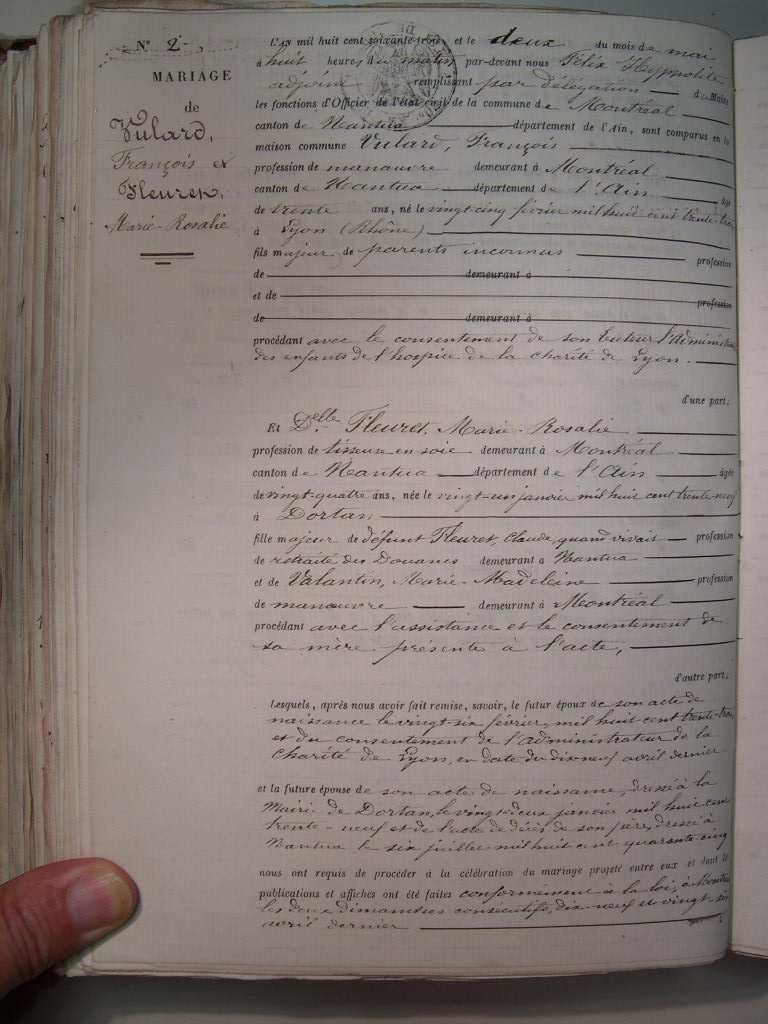 N° 2
MARIAGE
de
Vulard,
François et
Fleuret,
Marie-Rosalie
L'AN mil huit cent soixante trois et le deux du mois de mai
à huit heures du matin par-devant nous Félix Hyppolite
adjoint remplissant par délégation du Maire
les fonctions d'Officier de l'état civil de la commune de Montréal
canton de Nantua département de l'Ain, sont comparus en la
maison commune Vulard, François
profession de manœuvre demeurant à Montréal
canton de Nantua département de l'Ain âgé
de trente ans, né le vingt-cinq février mil huit cent trente-trois
à Lyon (Rhône)
fils majeur de parents inconnus profession
de demeurant à
et de profession
de demeurant à
procédant avec le consentement de son tuteur l'Administr
des enfants de l'hospice de la charité de Lyon.
d'une part;
Et Delle Fleuret, Marie-Rosalie
profession de tisseuse en soie demeurant à Montréal
canton de Nantua département de l'Ain âgée
de vingt-quatre ans, née le vingt-un janvier mil huit cent trente-neuf
à Dortan
fille majeur de défunt Fleuret, Claude, quand vivait profession
de retraité des Douanes demeurant à Nantua
et de Valantin, Marie-Madeleine profession
de manœuvre demeurant à Montréal
procédant avec l'assistance et le consentement de
sa mère présente à l'acte,
d'autre part;
Lesquels, après nous avoir fait remise, savoir, le futur époux de son acte de
naissance le vingt-six février, mil huit cent trente-trois,
et du consentement de l'administrateur de la
Charité de Lyon, en date du dix neuf avril dernier
et la future épouse de son acte de naissance, dressé à la
Mairie de Dortan, le vingt-deux janvier mil huit cent
trente-neuf et de l'acte de décès de son père, dressé à
Nantua le six juillet mil huit cent quarante-cinq
nous ont requis de procéder à la célébration du mariage projeté entre eux et dont les
publications et affiches ont été faites conformément à la loi, à Montréal
les deux dimanches consécutifs, dix-neuf et vingt-six
avril dernier